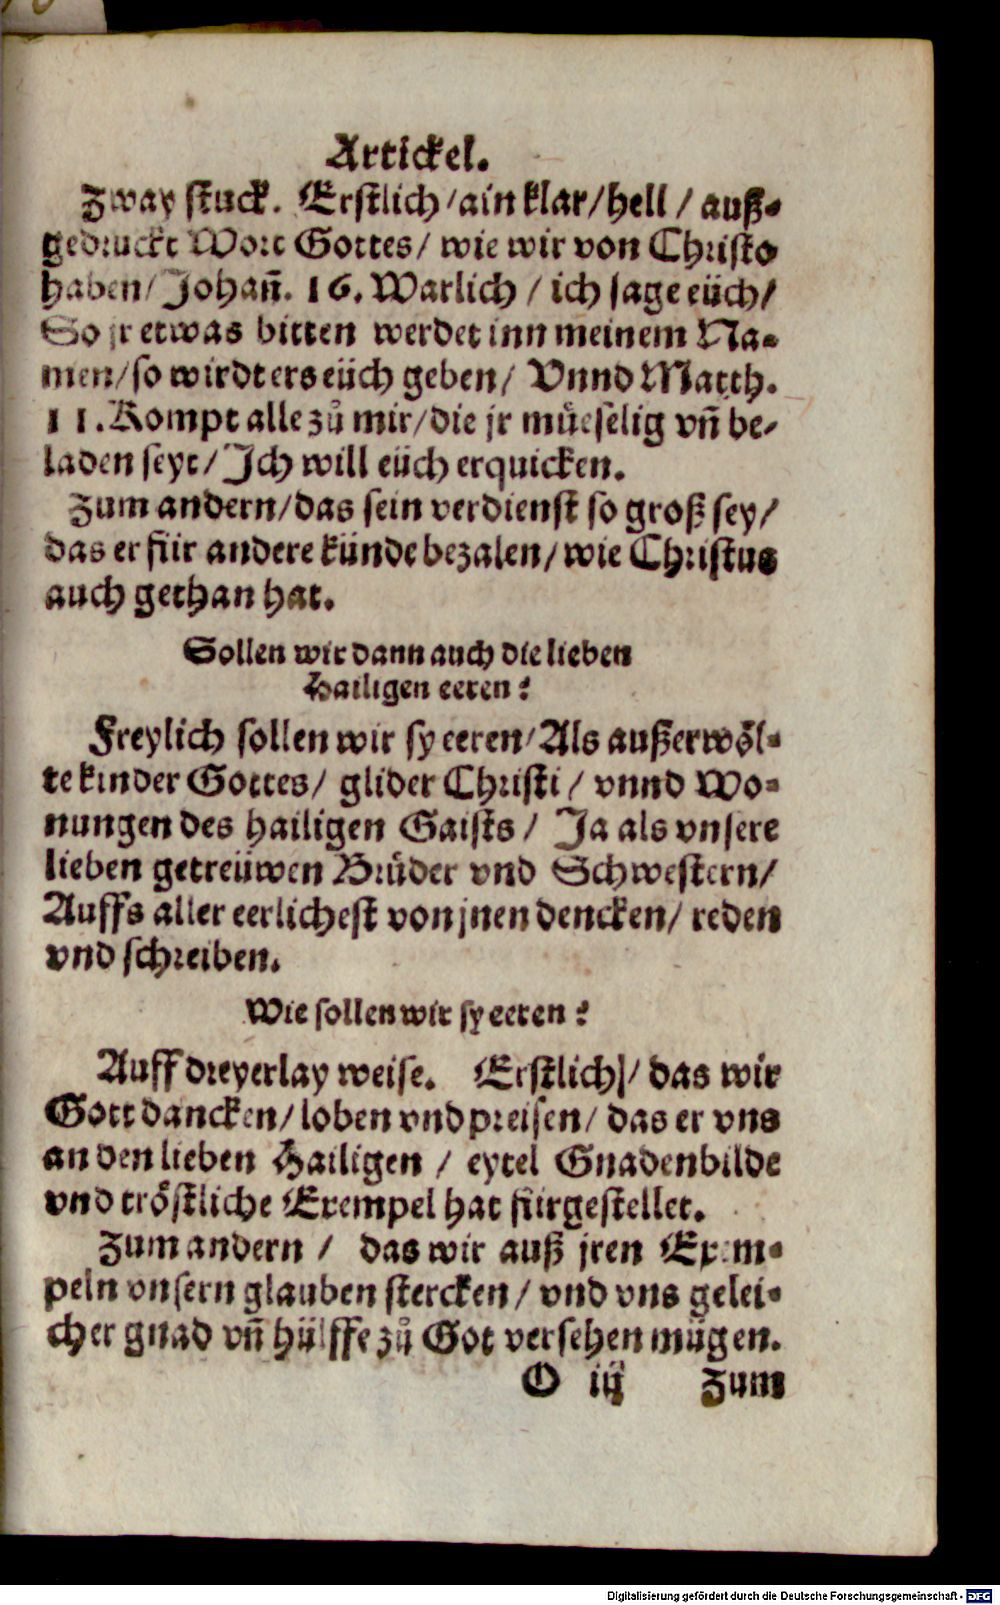 Artickel.
Zway stuck. Erstlich / ain klar / hell / auß-
gedruckt Wort Gottes / wie wir von Christo
haben / Johañ. 16. Warlich / ich sage eüch /
So jr etwas bitten werdet inn meinem Na-
men / so wirdt ers eüch geben / Vnnd Matth.
11. Kompt alle zů mir / die jr müeselig vñ be-
laden seyt / Jch will eüch erquicken.
Zum andern / das sein verdienst so groß sey /
das er für andere künde bezalen / wie Christus
auch gethan hat.
Sollen wir dann auch die lieben
Hailigen eeren?
Freylich sollen wir sy eeren / Als außerwöl-
te kinder Gottes / glider Christi / vnnd Wo-
nungen des hailigen Gaists / Ja als vnsere
lieben getreüwen Brüder vnd Schwestern /
Auffs aller eerlichest von jnen dencken / reden
vnd schreiben.
Wie sollen wir sy eeren?
Auff dreyerlay weise. Erstlich / das wir
Gott dancken / loben vnd preisen / das er vns
an den lieben Hailigen / eytel Gnadenbilde
vnd tröstliche Exempel hat fürgestellet.
Zum andern / das wir auß jren Exem-
peln vnsern glauben stercken / vnd vns gelei-
cher gnad vñ hülffe zů Got versehen mügen.
O iij Zum
Digitalisierung gefördert durch die Deutsche Forschungsgemeinschaft - DFG